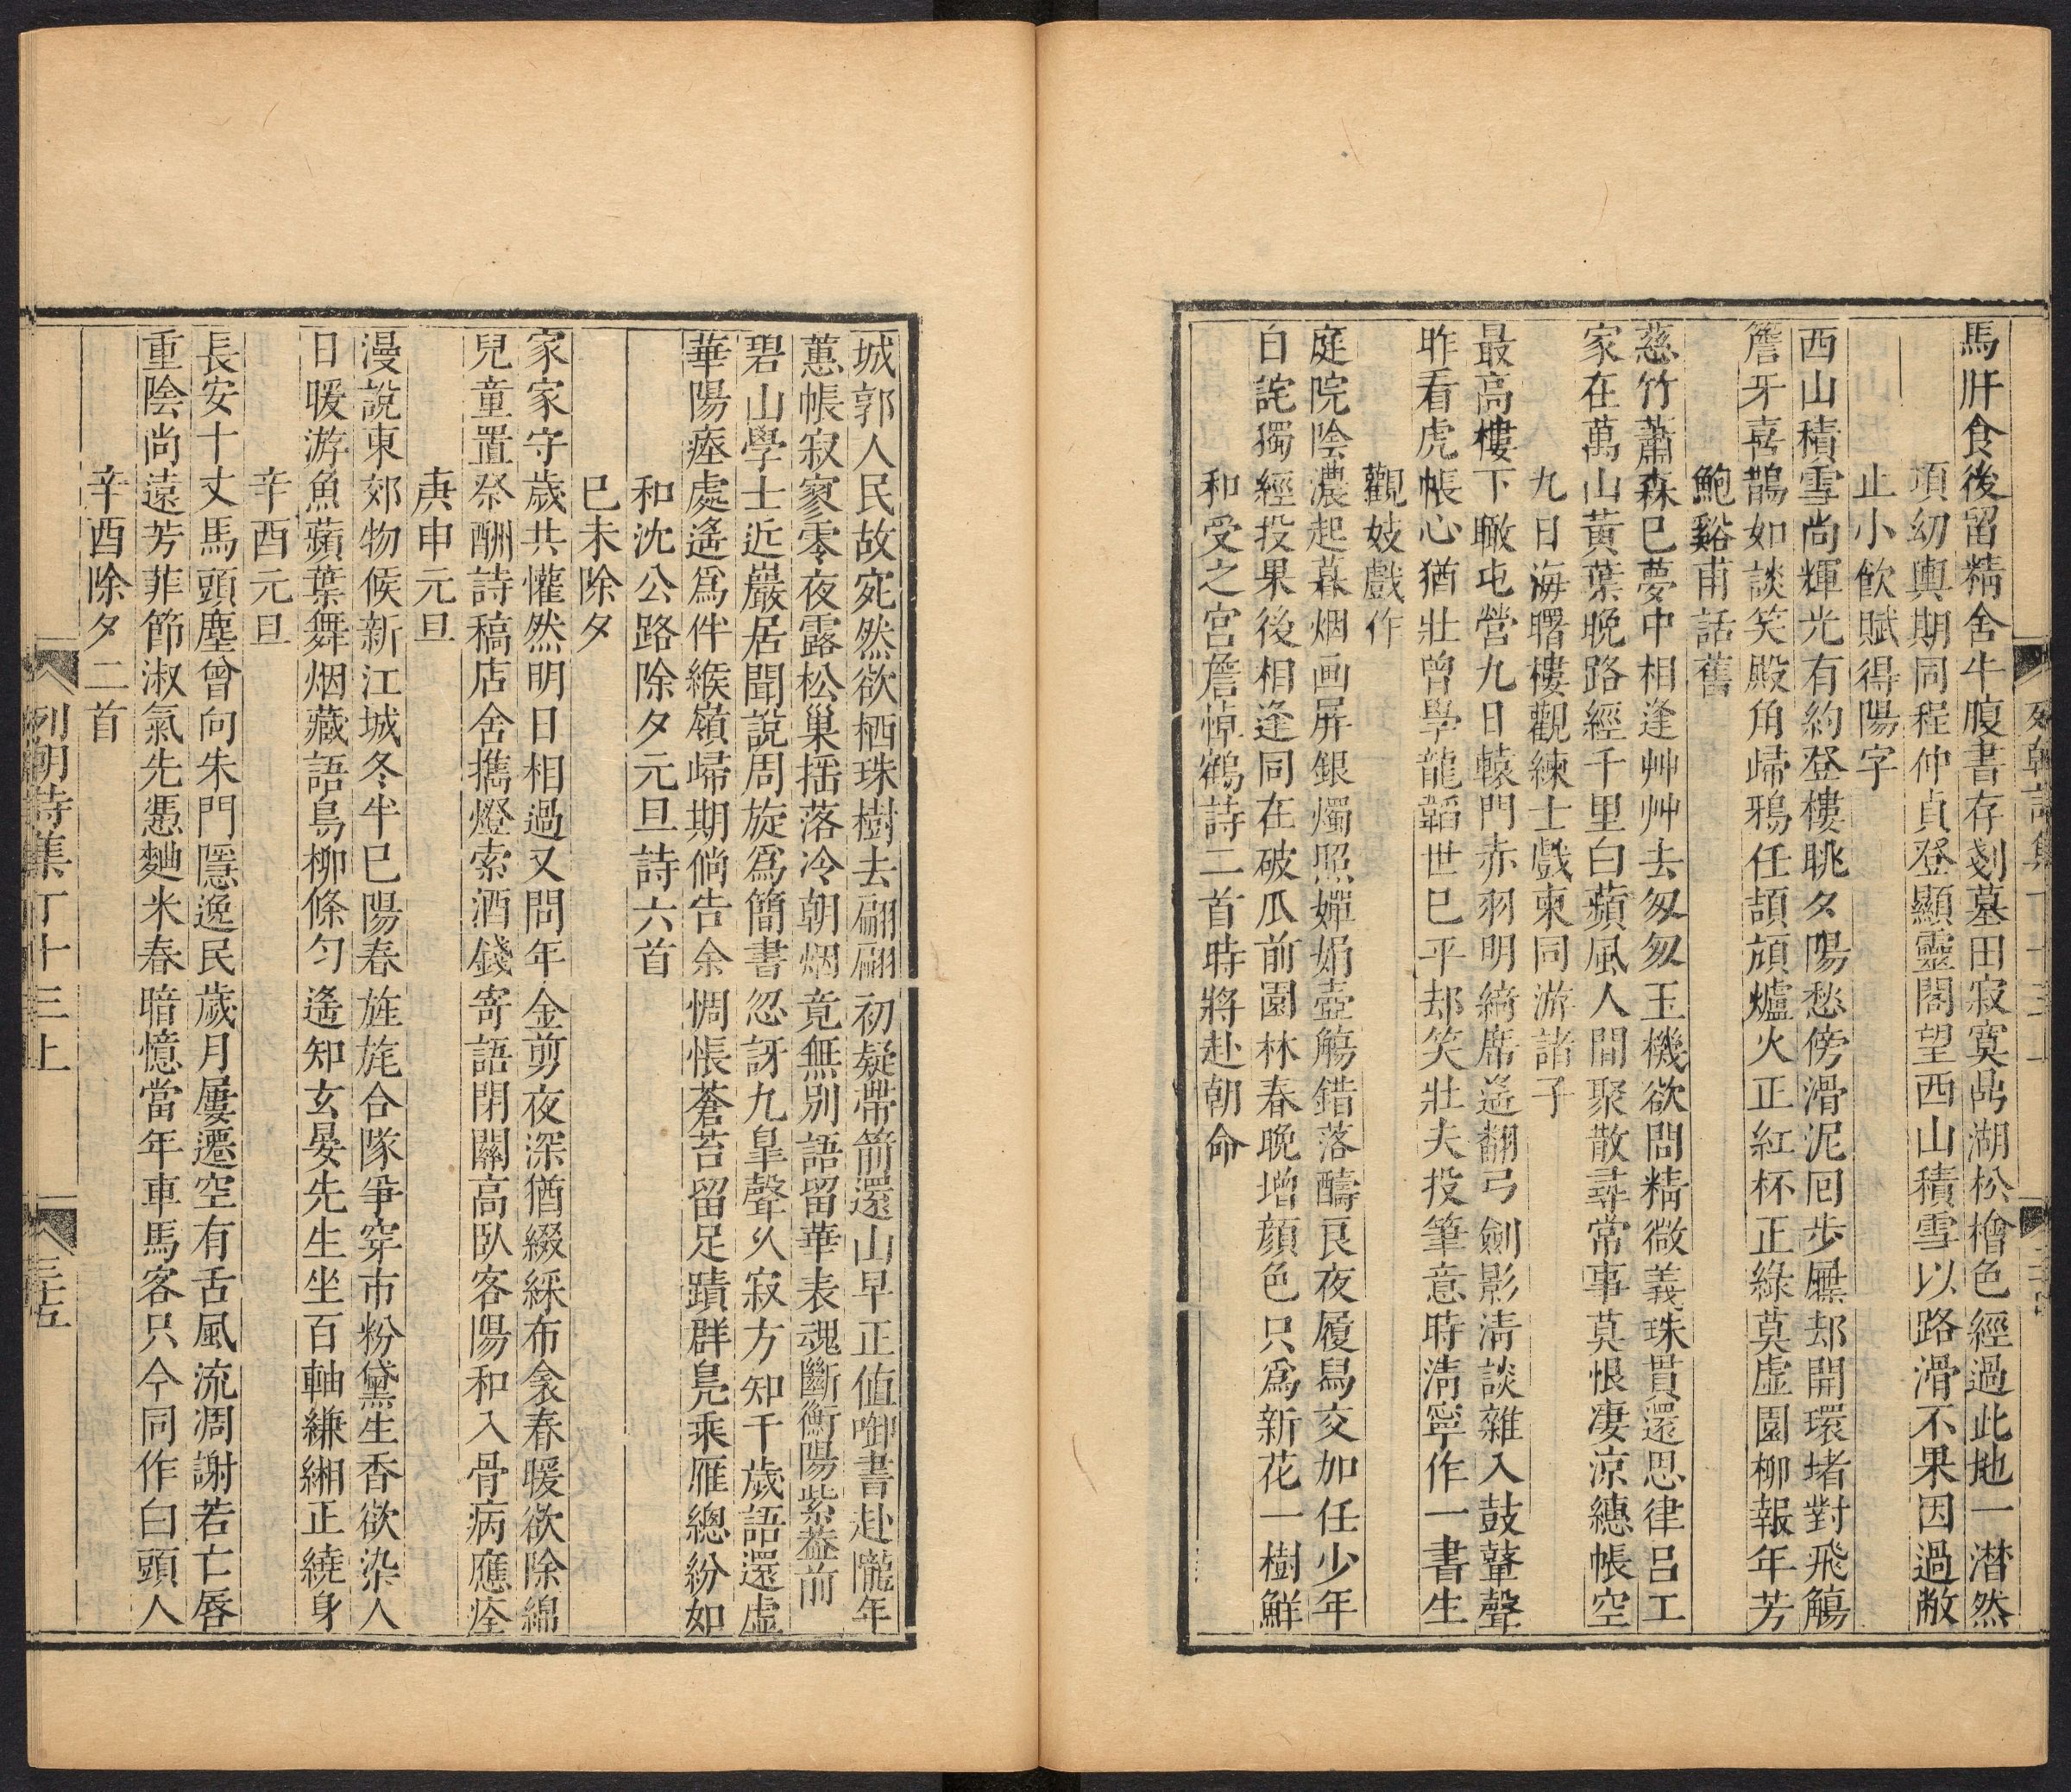 馬肝食後留精舍牛腹書存剗墓田寂寞鼎湖松檜色經過此地一潸然
項幼輿期同程仲貞登顯靈閣望西山積雪以路滑不果因過敝
止小飲賦得陽字
西山積雪尚輝光有約登樓眺夕陽愁傍滑泥囘步屧却開環堵對飛觴
簷牙喜鵲如談笑殿角歸鴉任頡頏爐火正紅杯正綠莫虛園柳報年芳
鮑谿甫話舊
慈竹蕭森巳夢中相逢艸艸去匆匆玉機欲問精微義珠貫還思律呂工
家在萬山黃葉晚路經千里白蘋風人間聚散尋常事莫恨凄涼繐帳空
九日海曙樓觀練士戲柬同游諸子
最高樓下瞰屯營九日轅門赤羽明綺席遙翻弓劍影淸談雜入鼓鼙聲
昨看虎帳心猶壯曾學龍韜世巳平却笑壯夫投筆意時淸寧作一書生
觀妓戲作
庭院陰濃起暮烟画屏銀燭照嬋娟壺觴錯落醻良夜履舄交加任少年
自詫獨經投果後相逢同在破瓜前園林春晚增顏色只爲新花一樹鮮
和受之宮詹悼鶴詩二首時將赴朝命
城郭人民故宛然欲栖珠樹去翩翩初疑帶箭還山早正值啣書赴隴年
蕙帳寂寥零夜露松巢揺落冷朝烟竟無别語留華表魂斷衡陽紫葢前
碧山學士近巖居聞說周旋爲簡書忽訝九皐聲久寂方知千歲語還虛
華陽瘞處遙爲伴緱嶺歸期倘告余惆悵蒼苔留足蹟群鳧乘雁總紛如
和沈公路除夕元旦詩六首
巳未除夕
家家守歲共懽然明日相過又問年金剪夜深猶綴綵布衾春暖欲除綿
兒童置祭酬詩稿店舍擕燈索酒錢寄語閉關高臥客陽和入骨病應痊
庚申元旦
漫說東郊物候新江城冬半巳陽春旌旄合隊爭穿市粉黛生香欲染人
日暖游魚蘋葉舞烟藏語鳥柳條勻遙知玄晏先生坐百軸縑緗正繞身
辛酉元旦
長安十丈馬頭塵曾向朱門隱逸民歲月屢遷空有舌風流凋謝若亡唇
重陰尚遠芳菲節淑氣先憑麯米春暗憶當年車馬客只今同作白頭人
辛酉除夕二首
列朝詩集丁十三上
三十五